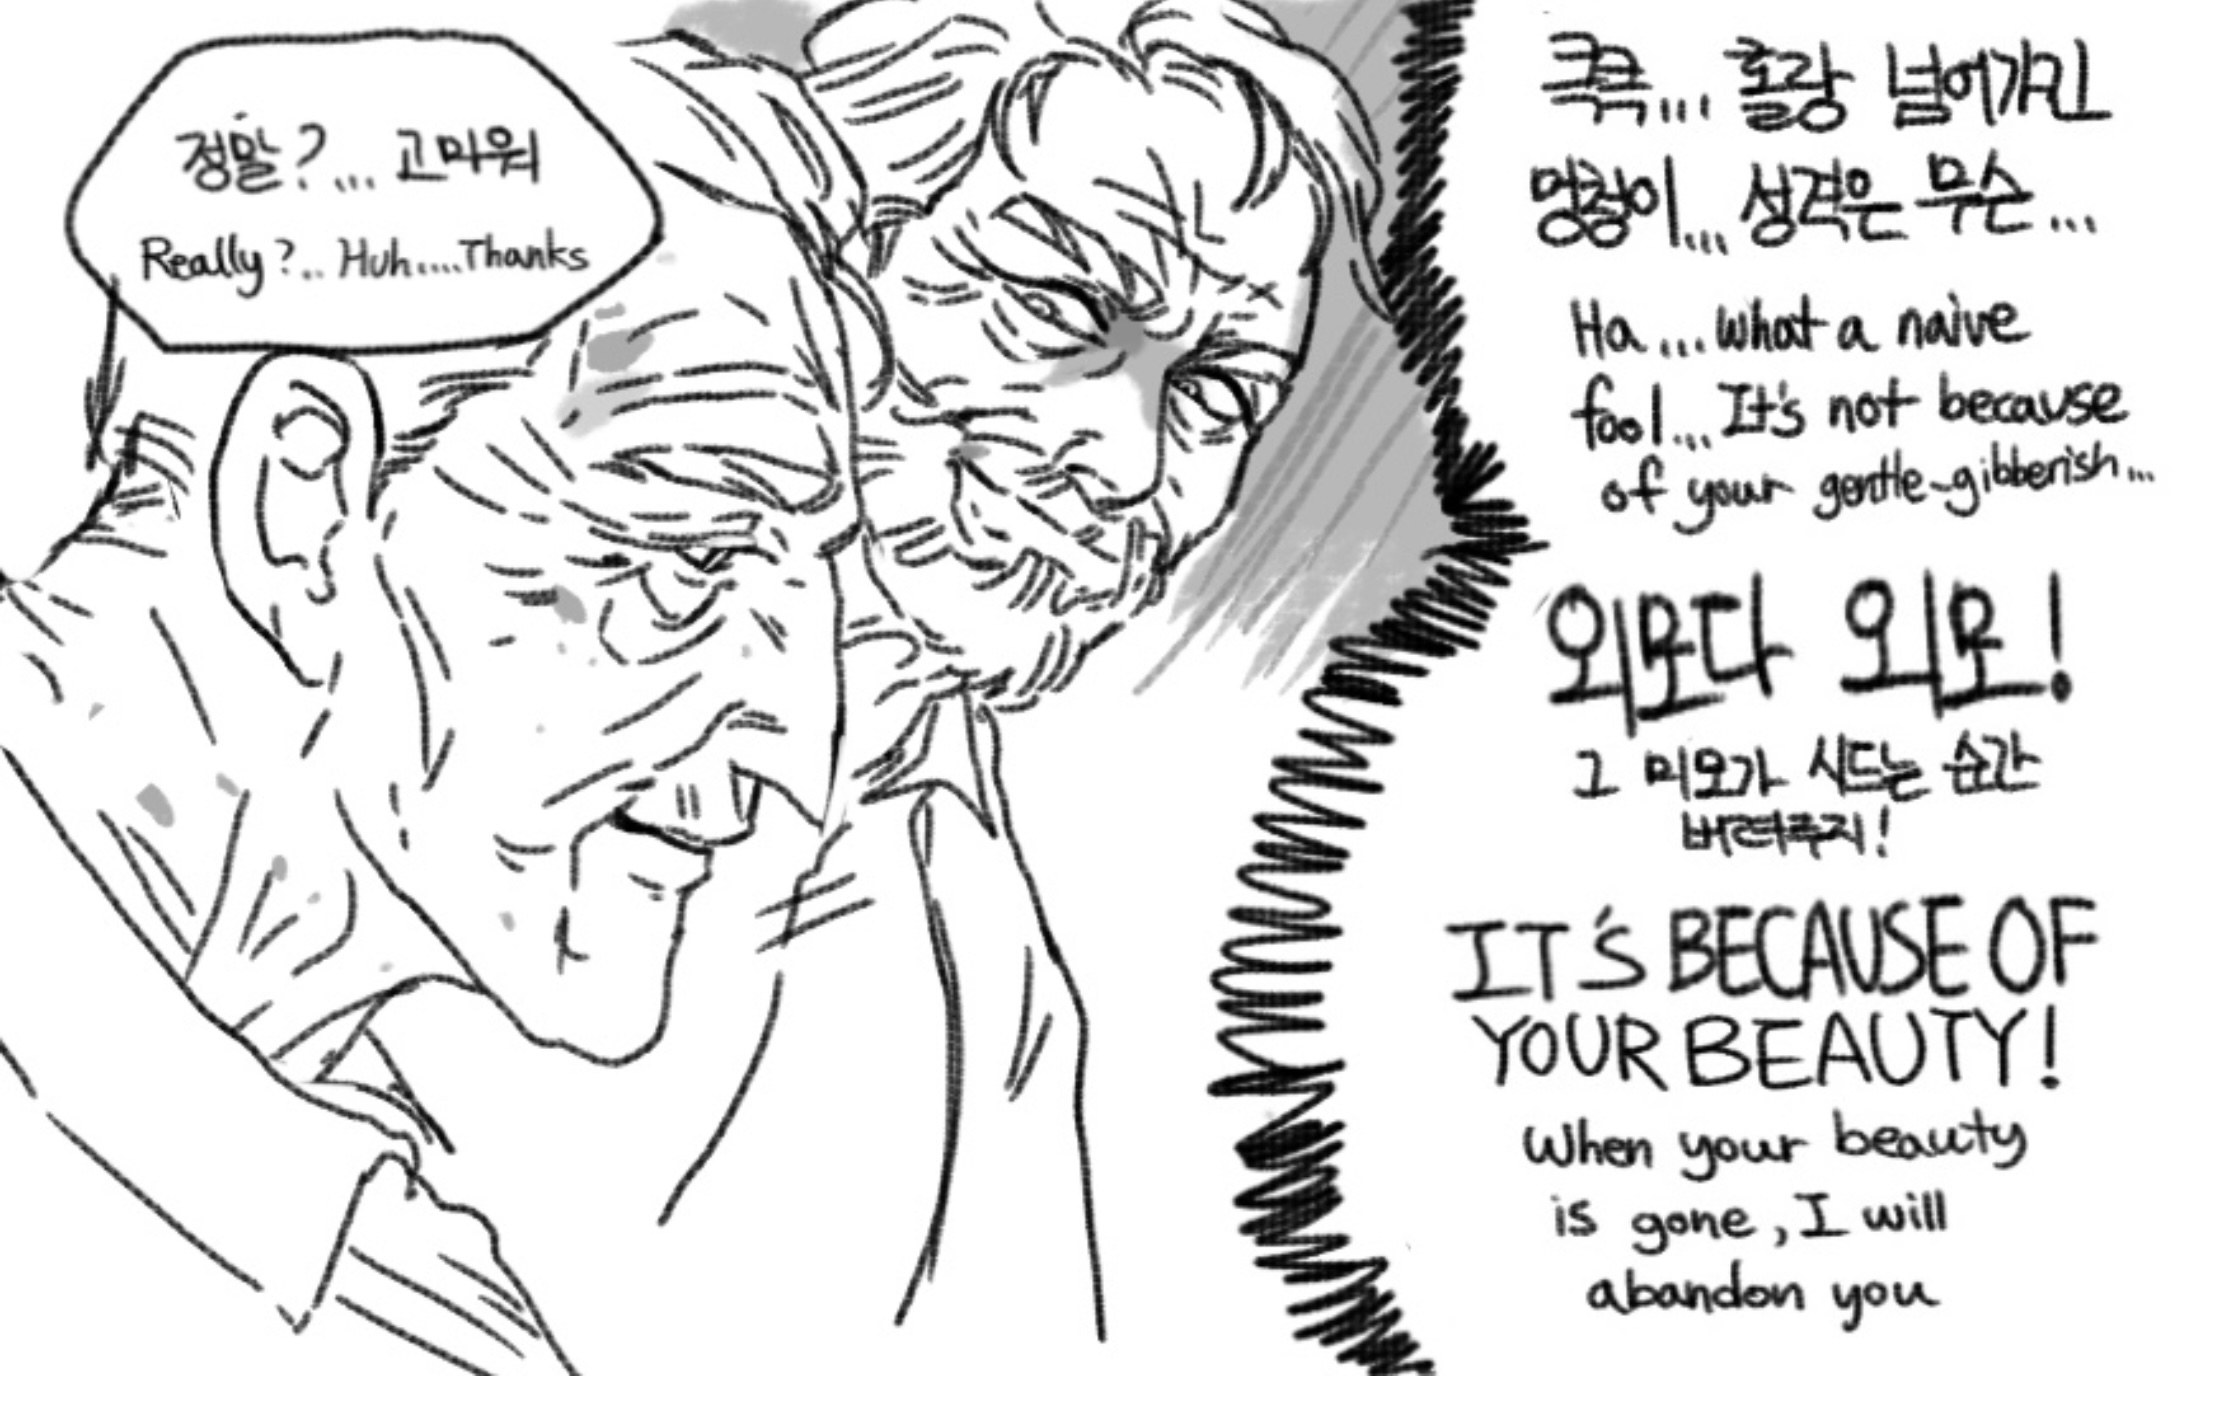 정말?... 고마워
Really?.. Huh....Thanks
큭큭... 홀랑 넘어가긴
멍청이... 성격은 무슨...
Ha... what a naive
fool... It's not because
of your gentle-gibberish...
외모다 외모!
그 미모가 시드는 순간
버려주지!
IT'S BECAUSE OF
YOUR BEAUTY!
When your beauty
is gone, I will
abandon you